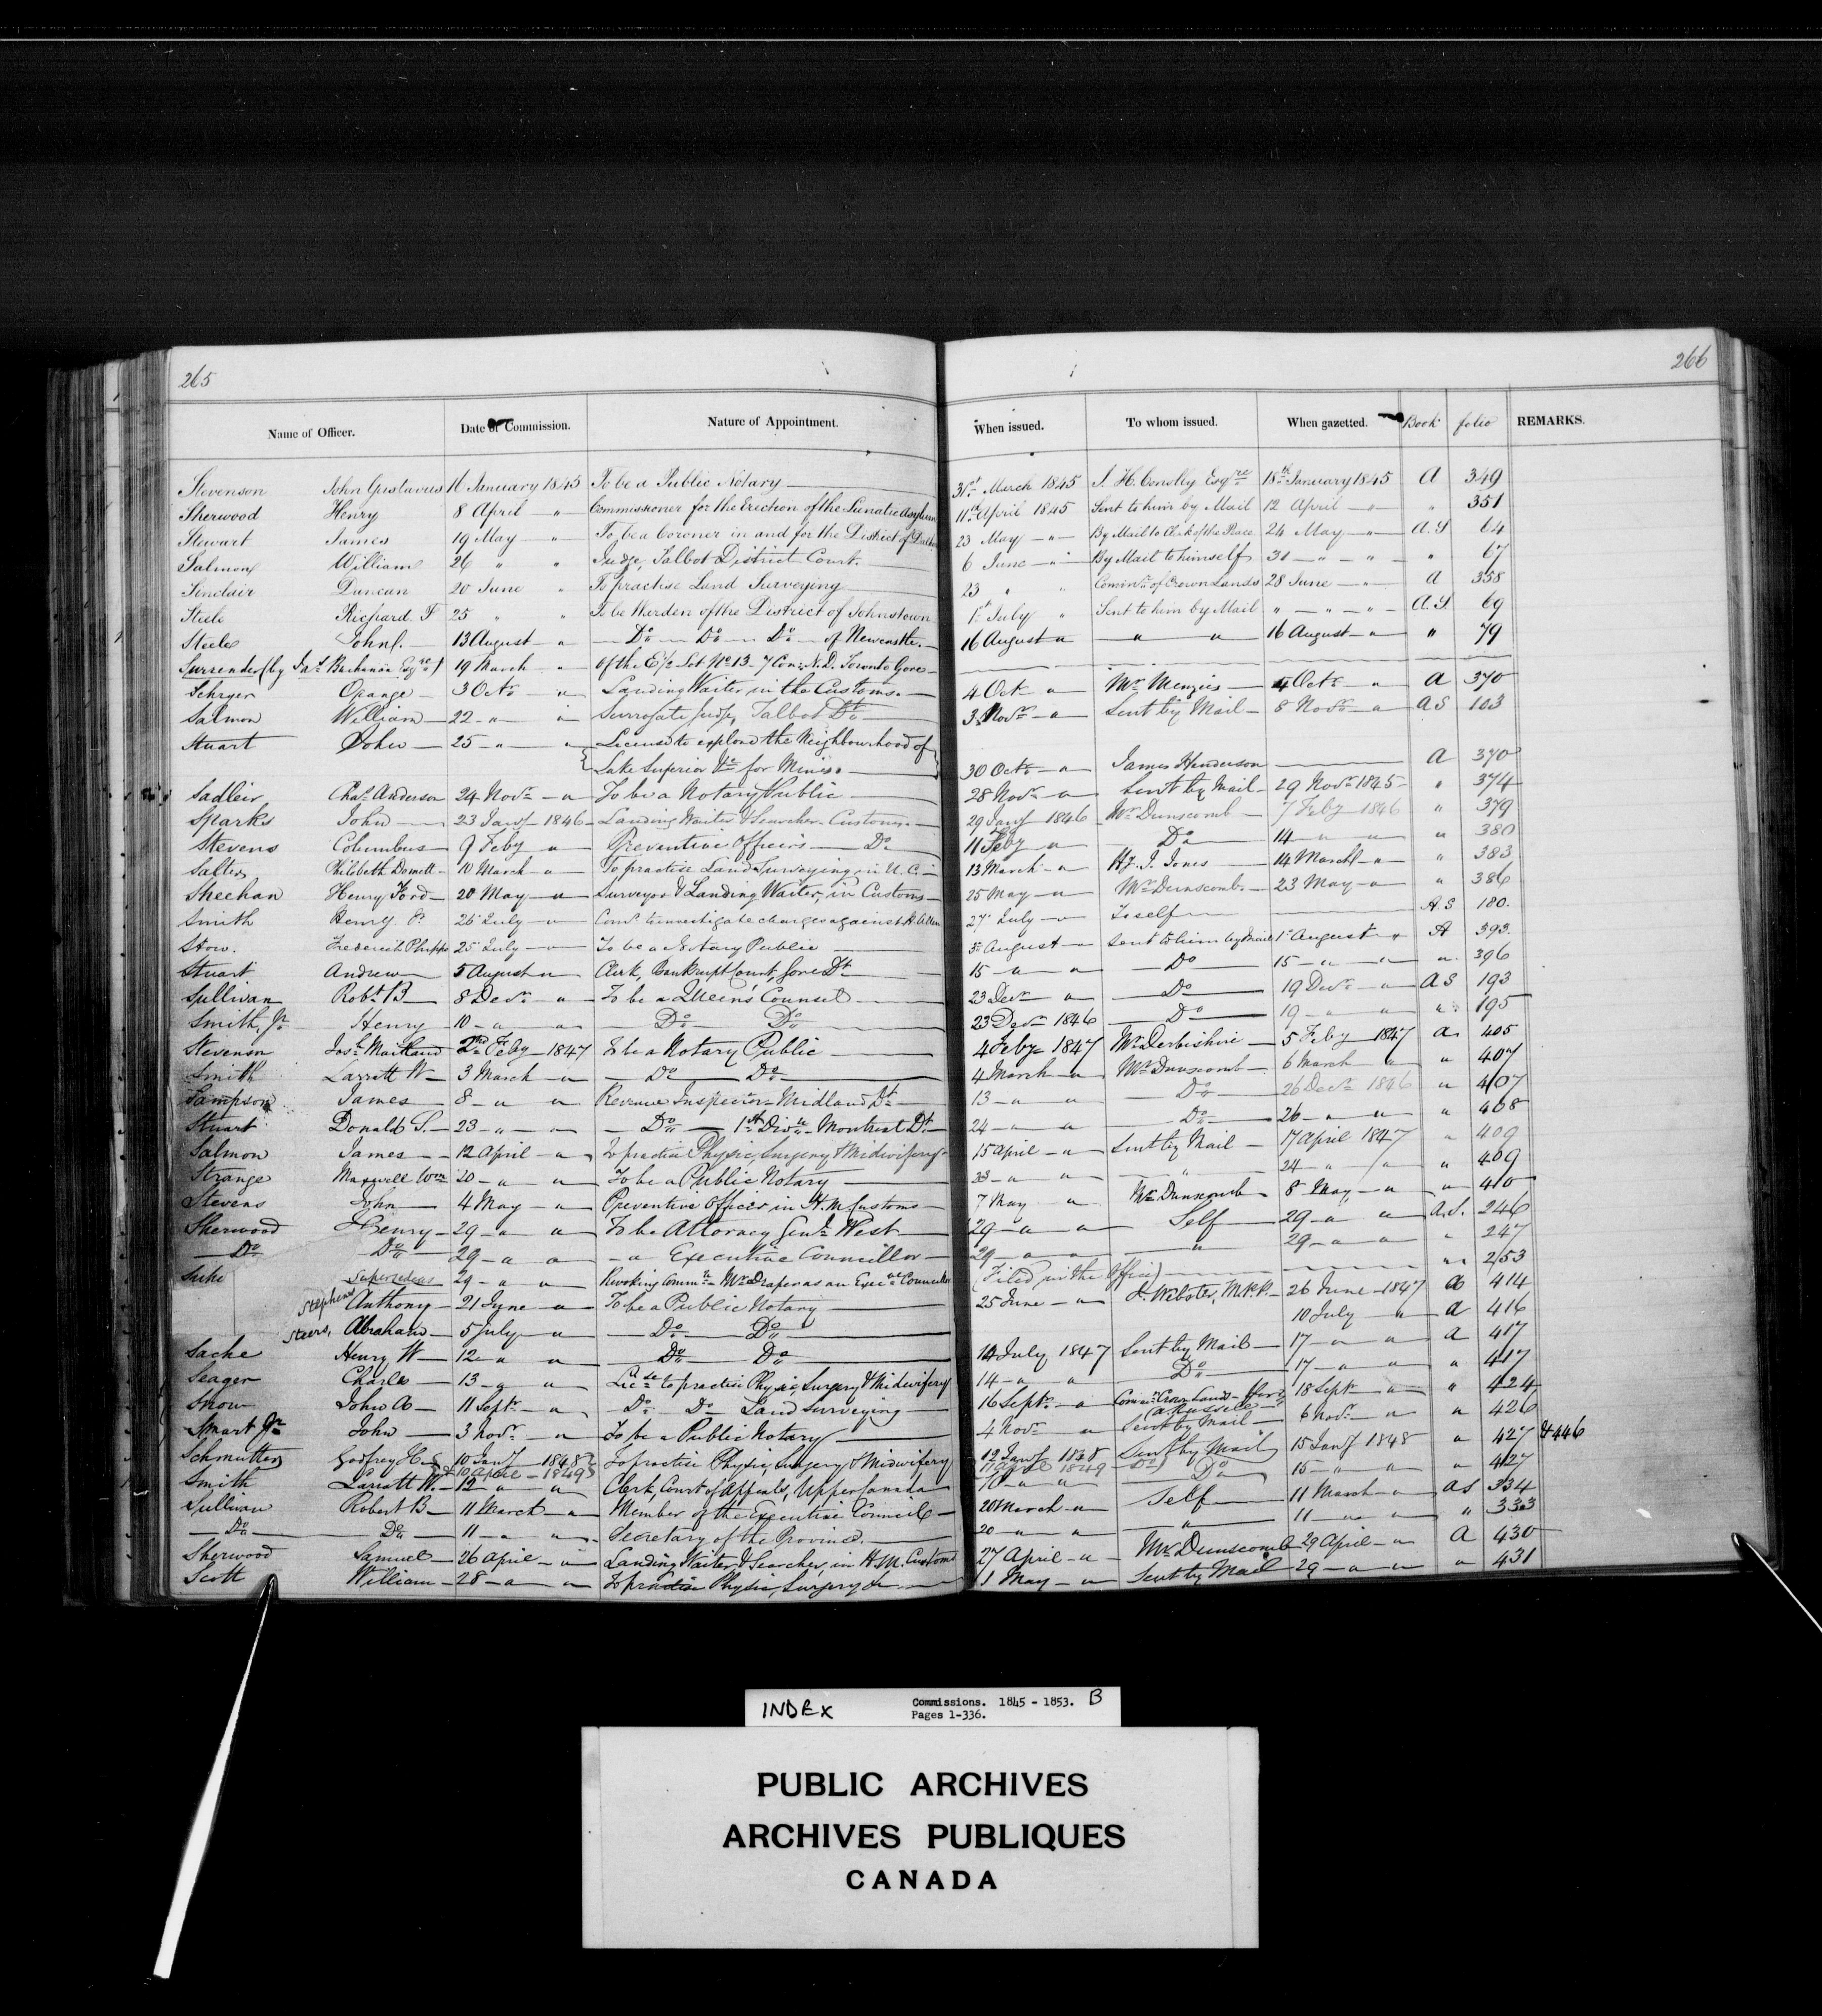 265
266
Name of Officer. Date of Commission. Nature of Appointment. When issued. To whom issued. When gazetted. Book folio REMARKS.
Stevenson John Gustavus 16 January 1845 To be a Public Notary 31st March 1845 J. H. Conolly Esqre 18th January 1845 A 349
Sherwood Henry 8 April " Commissioner for the Erection of the Lunatic Asylum 11th April 1845 Sent to him by Mail 12 April " " 351
Stewart James 19 May " To be a Coroner in and for the District of 23 May " By Mail to Clk of the Peace 24 May " A.S 64
Salmon William 26 " " Judge, Talbot District Court. 6 June " By Mail to himself 31 " " " 67
Sinclair Duncan 20 June " To practise Land Surveying 23 " " Commr of Crown Lands 28 June " A 358
Steele Richard F 25 " " To be Warden of the District of Johnstown 1st July " Sent to him by Mail " " " A.S. 69
Steele John 13 August " Do Do Do of Newcastle. 16 August " " " 16 August " " 79
Surrender (by Jas Buchanan Esqre) 19 March " of the E/2 Lot No 13 - 7 Con: N.D. Toronto Gore
Schryer Orange 3 Octr " Landing Waiter in the Customs. 4 Octr " Mr Menzies 4 Octr " A 370
Salmon William 22 " " Surrogate Judge, Talbot Dt 3 Novr " Sent by Mail 8 Novr " AS 103
Stuart John 25 " " License to explore the Neighbourhood of
Lake Superior &c for Mines. 30 Octr " James Henderson A 370
Sadleir Chas Anderson 24 Novr " To be a Notary Public 28 Novr " Sent by Mail 29 Novr 1845 " 374
Sparks John 23 Jany 1846 Landing Waiter & Searcher Customs 29 Jany 1846 Mr Dunscomb 7 Feby 1846 " 379
Stevens Columbus 9 Feby " Preventive Officer Do 11 Feby " Do 14 " " " 380
Salter Philebeth Domett 10 March " To practise Land Surveying in U. C. 13 March " H. J. Jones 14 March " " 383
Sheehan Henry Ford 20 May " Surveyor & Landing Waiter, in Customs 25 May " Mr Dunscomb. 23 May " " 386
Smith Henry 26 July " Comr to investigate charges against H. Allen 27 July " To self A.S 180.
Stow. Frederick Phipps 25 July " To be a Notary Public 3 August " Sent to him by Mail 1st August " A 393.
Stuart Andrew 5 August " Clerk, Bankrupt Court, Gore Dt 15 " " Do 15 " " " 396
Sullivan Robt B 8 Decr " To be a Queen's Counsel 23 Decr " Do 19 Decr " AS 193
Smith, Jr Henry 10 " " Do Do 23 Decr 1846 Do 19 " " " 195
Stevenson Jas Maitland 2nd Feby 1847 To be a Notary Public 4 Feby 1847 Mr Derbishire 5 Feby 1847 A 405
Smith Larratt W 3 March " Do Do 4 March " Mr Dunscomb 6 March " " 407
Sampson James 8 " " Revenue Inspector Midland Dt 13 " " Do 26 Decr 1846 " 407
Stuart Donald S. 23 " " Do 1st Divn Montreal Dt 24 " " Do 26 " " " 408
Salmon James 12 April " To practise Physic, Surgery & Midwifery 15 April " Sent by Mail 17 April 1847 " 409
Strange Maxwell Wm 20 " " To be a Public Notary 23 " " " 24 " " " 409
Stevens John 4 May " Preventive Officer in H. M. Customs 7 May " Mr Dunscomb 8 May " " 410
Sherwood Henry 29 " " To be Attorney Genl West 29 " " Self 29 " " A.S. 246
Do Do 29 " " " a Executive Councillor 29 " " " 29 " " " 247
Supersedeas 29 " " Revoking Commn Mr Draper as an Execve Councillor (Filed in the Office) " 253
Stephens Anthony 21 June " To be a Public Notary 25 June " Webster, M.P.P. 26 June 1847 A 414
Steers, Abraham 5 July " Do Do 10 July " A 416
Sache Henry W 12 " " Do Do 14 July 1847 Sent by Mail 17 " " A 417
Seager Charles 13 " " Licse to practise Physic, Surgery & Midwifery 14 " " Do 17 " " " 417
Snow John A 11 Septr " Do Do Land Surveying 16 Septr " Commr Crown Lands (A Russell) 18 Septr " " 424
Smart Jr John 3 Novr " To be a Public Notary 4 Novr " Sent by Mail 6 Novr " " 426
Schmutter Godfrey H. S 10 Jany 1848 To practise Physic, Surgery & Midwifery 12 Jany 1848 Sent by Mail 15 Jany 1848 " 427 & 446
& 10 April 1849 11 April 1849 Do
Smith Larratt W. 12 " " Clerk, Court of Appeals, Upper Canada 10 " " Do 15 " " " 427
Sullivan Robert B 11 March " Member of the Executive Council 20 March " Self 11 March " AS 334
Do Do 11 " " Secretary of the Province. 20 " " " 11 " " " 333
Sherwood Samuel 26 April " Landing Waiter & Searcher, in H.M. Customs 27 April " Mr Dunscomb 29 April " A 430
Scott William 28 " " To practise Physic, Surgery &c 1 May " Sent by Mail 29 " " " 431
INDEX Commissions. 1845 - 1853. B
Pages 1-336.
PUBLIC ARCHIVES
ARCHIVES PUBLIQUES
CANADA